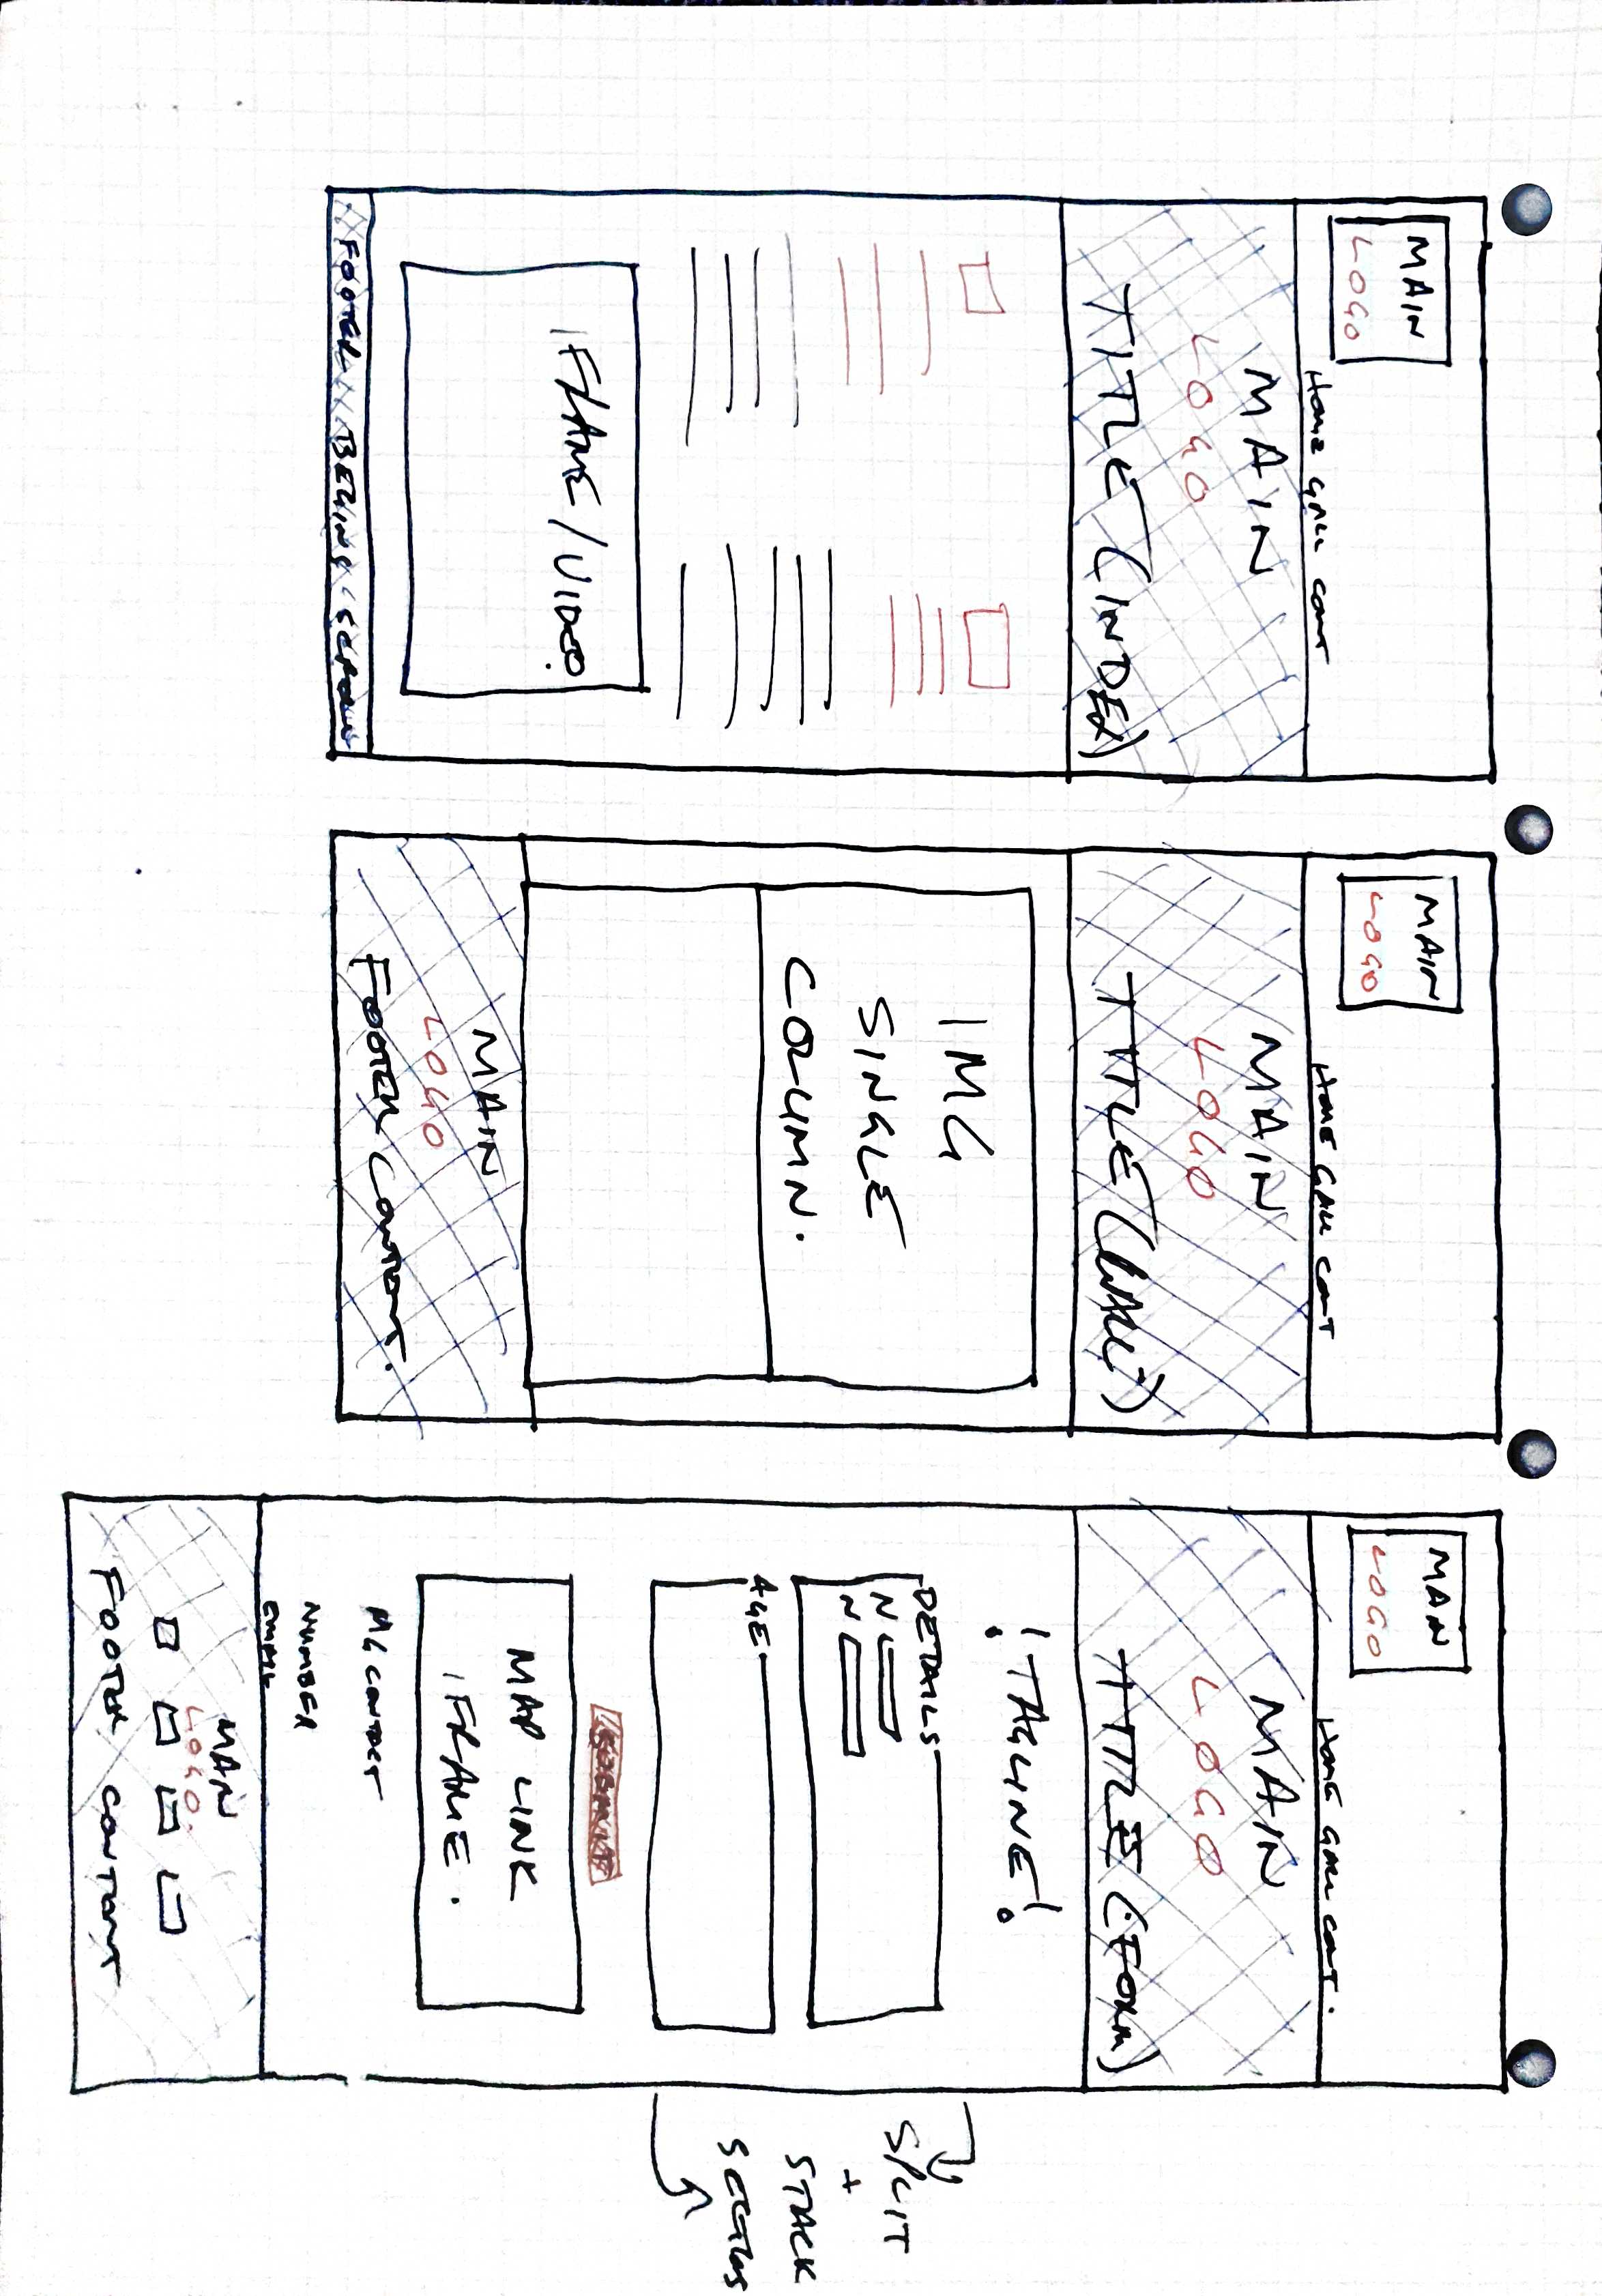 MAIN
LOGO
HOME GALL CONT
MAIN
LOGO
TITLE (INDEX)
IFRAME/VIDEO
FOOTER BEGINS SCROLL
MAIN
LOGO
HOME GALL CONT
MAIN
LOGO
TITLE (GALL)
IMG
SINGLE
COLUMN.
MAIN
LOGO
FOOTER CONTENT.
MAIN
LOGO
HOME GALL CONT.
MAIN
LOGO
TITLE (FORM)
! TAGLINE !
DETAILS
N
N
AGE
SUBMIT
MAP LINK
IFRAME.
CONTACT
NUMBER
EMAIL
MAIN
LOGO.
FOOTER CONTENT
SPLIT
+
STACK